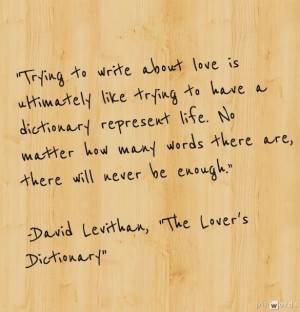 "Trying to write about love is
ultimately like trying to have a
dictionary represent life. No
matter how many words there are,
there will never be enough."
-David Levithan, "The Lover's
Dictionary"